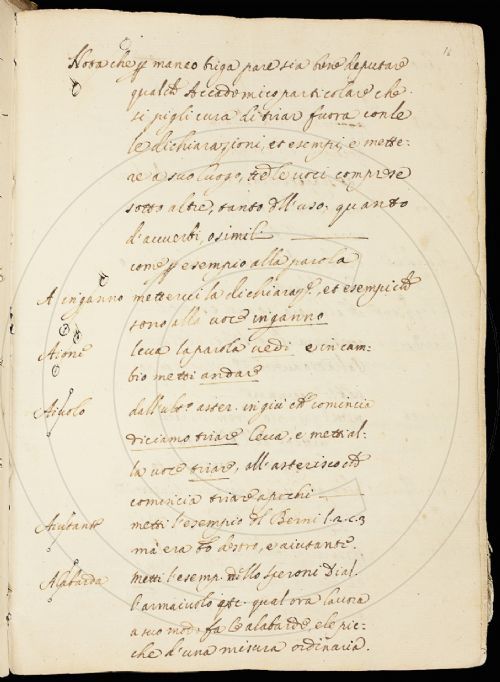 16
Nota che p manco briga pare sia bene deputare
qualch Accademico particolare che
si pigli cura di tirar fuora con le
le dichiarazioni, et esempi, e mette=
re a suo luogo, tte le voci comprese
sotto altre, tanto dll'uso, quanto
d'avverbi, o simili
come p esempio alla parola
A inganno metterci la dichiaraz.e, et esempi ch
sono alla voce inganno
Aione leva la parola vedi e in cam=
bio metti andare
Aiuolo dall'ult.o aster. in giù ch comincia
diciamo tirare leva, e metti al=
la voce tirare, all'asterisco ch
comincia tirare a pochi
Aiutante metti l'esempio dl Berni l.2.c.3
ma era destro, e aiutante.
Alabarda metti l'esemp. dllo Speroni Dial.
l'armaiuolo qual ora lavora
a suo mod. fa le alabarde, e le pic=
che d'una misura ordinaria.